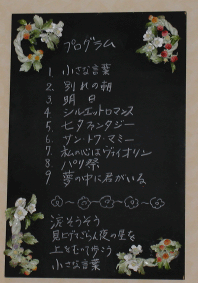 プログラム
1. 小さな言葉
2. 別れの朝
3. 明日
4 シルエットロマンス
5. 七夕ファンタジー
6. サン・トワ・ミー
7. 私の心はヴァイオリン
8. パリ祭
9 夢の中に君がいる
涙そうそう
見上げてごらん夜の星を
上をむいて歩こう
小さな言葉